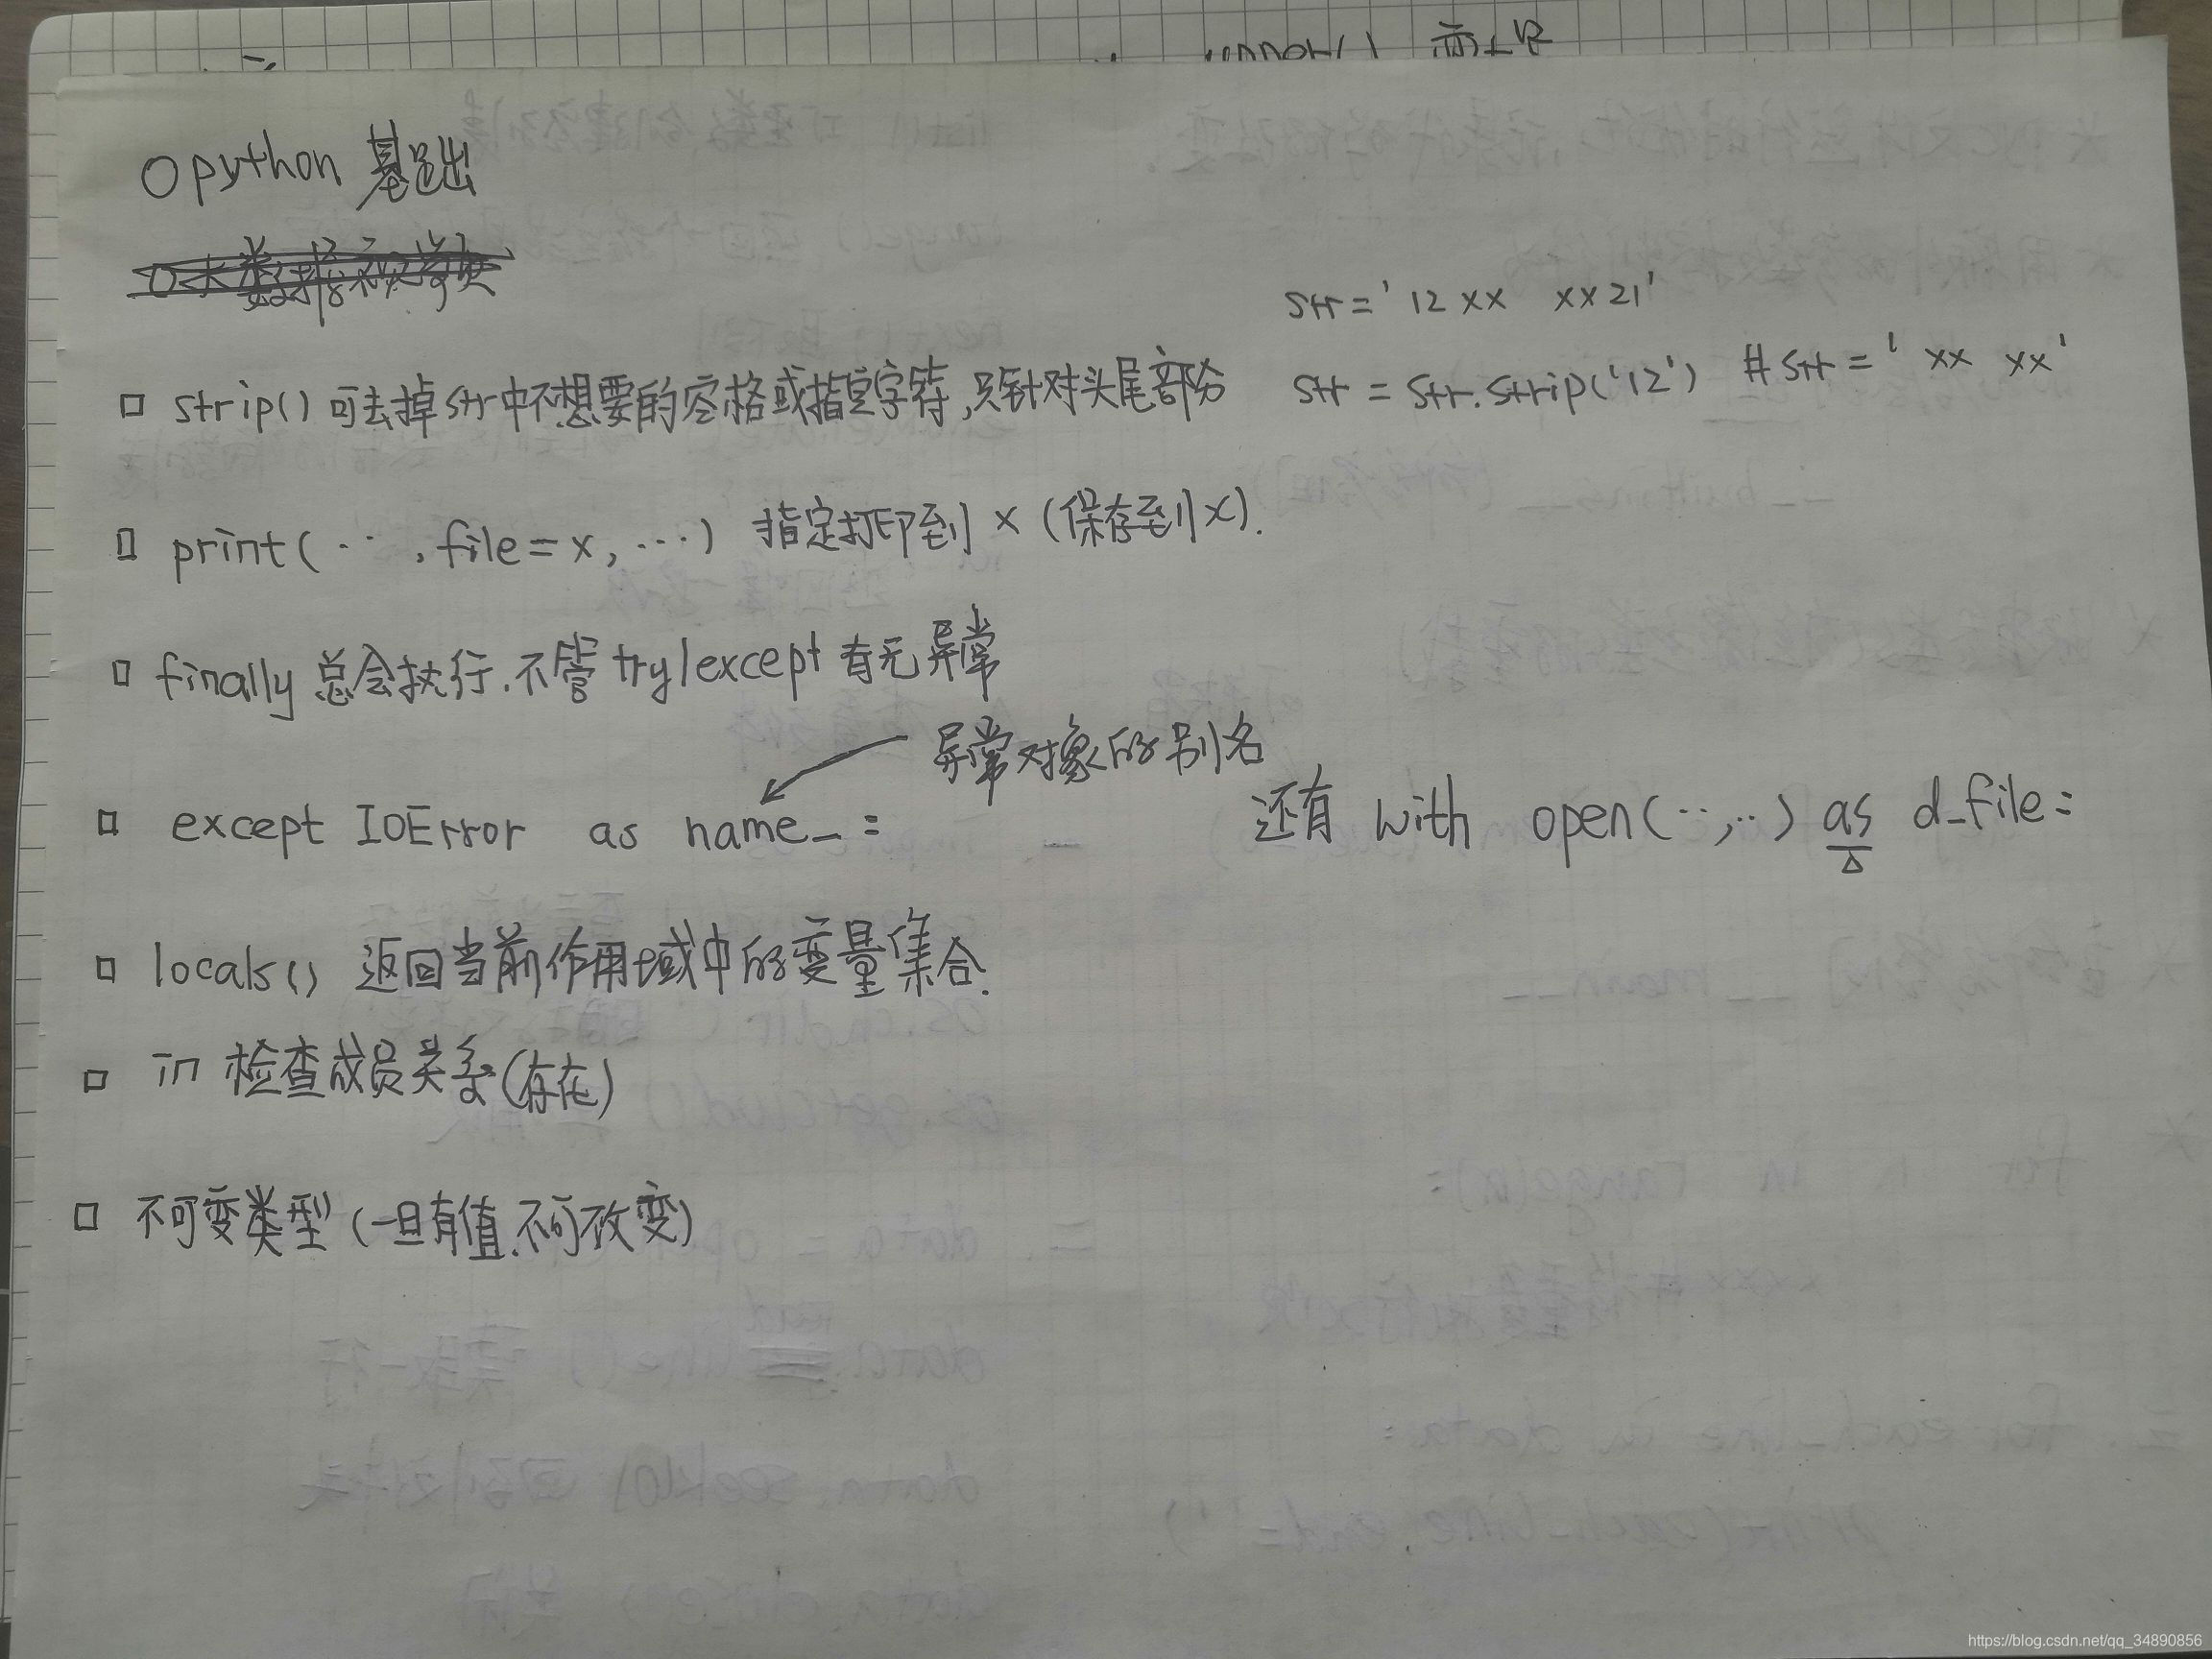 O python 基础
str = ' 12 xx xx 21'
□ strip() 可去掉str中不想要的空格或指定字符,只针对头尾部分
str = str.strip('12') # str = ' xx xx '
□ print(··,file=x,···) 指定打印到x (保存到x).
□ finally 总会执行.不管 try/except 有无异常
异常对象的别名
□ except IOError as name_:
还有 with open(··,··) as d_file:
□ locals() 返回当前作用域中的变量集合.
□ in 检查成员关系(存在)
□ 不可变类型 (一旦有值.不可改变)
https://blog.csdn.net/qq_34890856